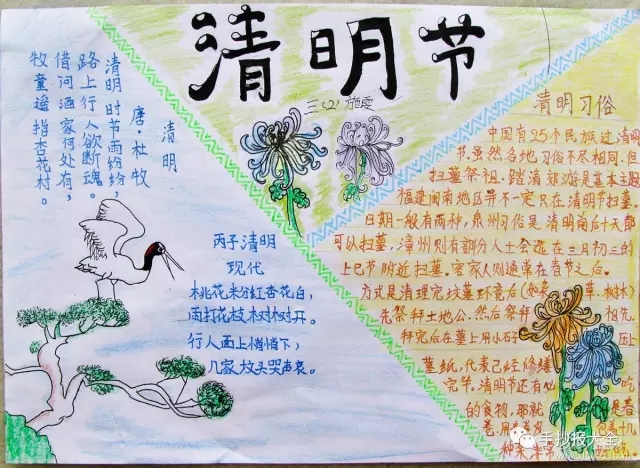 清明节
三(2)
清明
唐·杜牧
清明时节雨纷纷，
路上行人欲断魂。
借问酒家何处有，
牧童遥指杏花村。
丙子清明
现代
桃花粉红杏花白，
雨打花枝树树开。
行人面上悄悄下，
几家坟头哭声哀。
清明习俗
中国有25个民族过清明
节，虽然各地习俗不尽相同，但
扫墓祭祖、踏清郊游是基本主题
福建闽南地区并不一定只在清明节扫墓，
日期一般有两种，泉州习俗是清明前后十天都
可以扫墓，漳州则有部分人士会选在三月初三的
上巳节附近扫墓，客家人则通常在春节之后。
方式是清理完坟墓环境后
草、树木)
先祭拜土地公，然后祭拜
祖先，
拜完后在墓上用小石
压上
墓纸，代表已经修缮
完毕，清明节还有必
吃
的食物，那就
是春
卷，用
种菜
手抄报大全